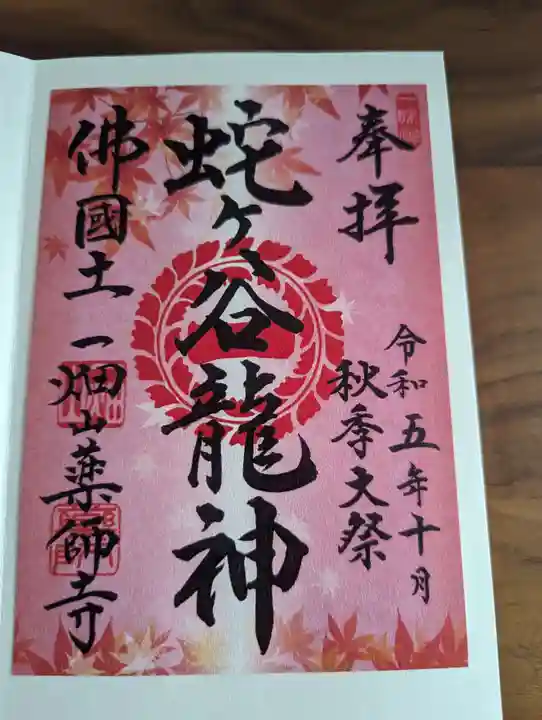 奉拝
令和五年十月
秋季大祭
蛇ヶ谷龍神
佛國土 一畑山薬師寺